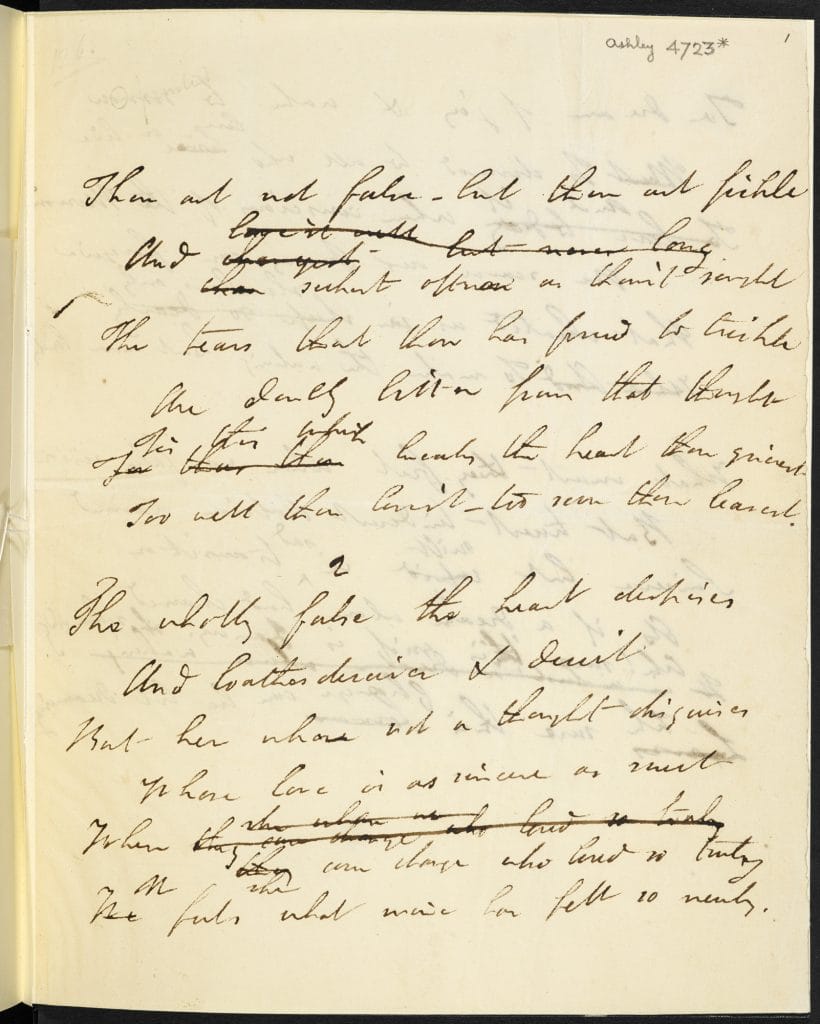 Ashley 4723*
1
Thou art not false - but thou art fickle
lovest well
And changest - but never long
than seekest oftener as thou'st sought
The tears that thou has forced to trickle
Are doubly bitter from that thought
Tis this which
breaks the heart thou grievest
Too well thou lovest - too soon thou leavest.
2
The wholly false the heart despises
And loathes deceiver & deceit
But her who not a thought disguises
Whose love is as sincere as sweet
she when
When they can change who loved so truly
they can change who loved so truly
It she
He feels what mine has felt so newly.